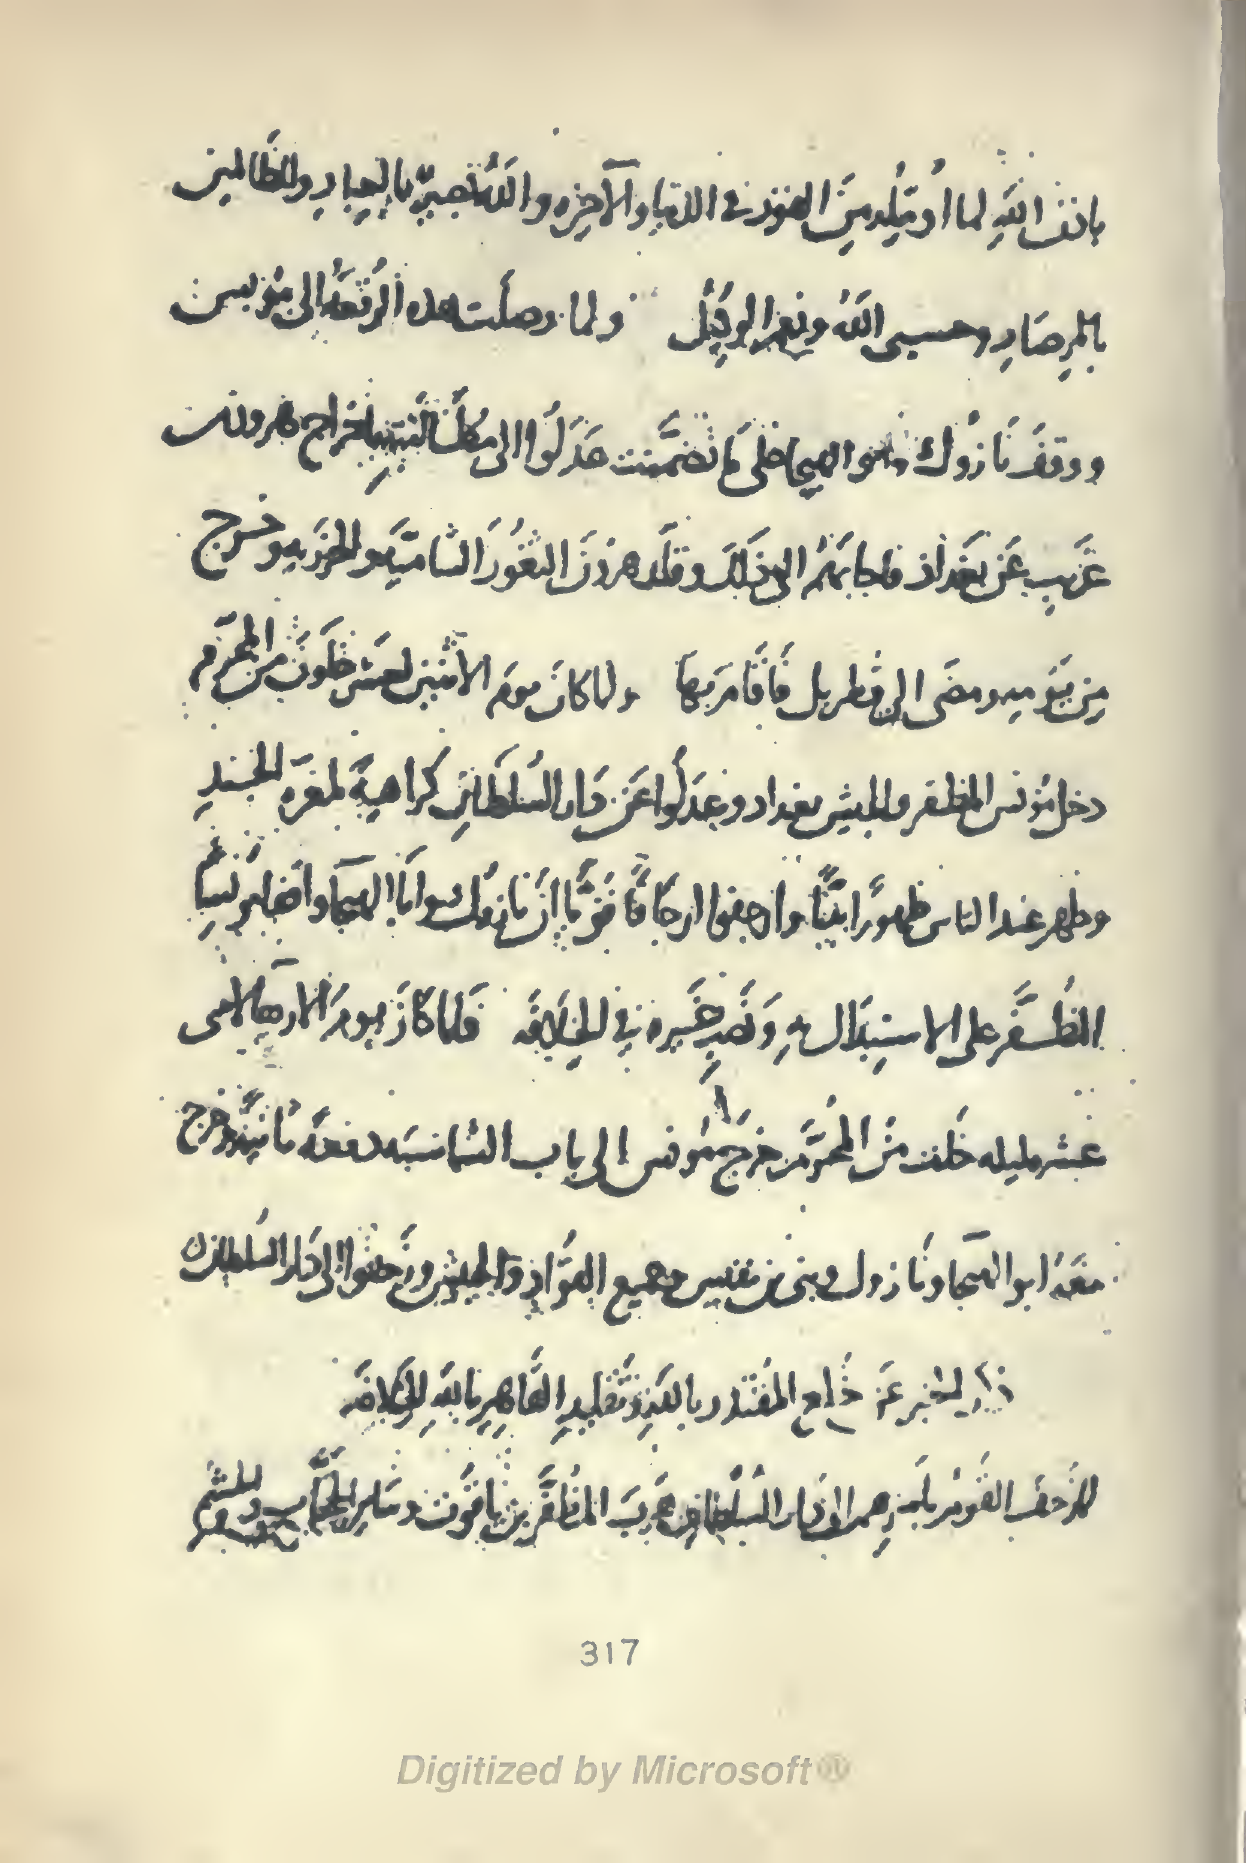 باذن الله لما اومله من الفوز في الدنيا والآخرة والله بصير بالعباد وللظالمين
بالمرصاد وحسبي الله ونعم الوكيل ولما وصلت هذه الرقعة الى مونس
ووقف نازوك وابو الهيجا على ما تضمنت عدلوا الى مطالبته باخراج هرون بن
غريب عن بغداذ فاجابهم الى ذلك وقلد هرون الثغور الشامية والجزرية وخرج
من يومه ومضى الى قطربل فاقام بها ولما كان يوم الاثنين لعشر خلون من المحرم
دخل مونس المظفر والجيش بغداد وعدلوا عن دار السلطان كراهية لمعرة الجند
وظهر عند الناس ظهورا بينا وارجفوا ارجافا قويا ان نازوك وابا الهيجا واضابو نسا
المظفر على الاستبدال به ونصب غيره في الخلافة فلما كان يوم الاربعا لاثنى
عشر ليله خلت من المحرم خرج مونس الى باب الشماسيه دفعة ثانية وخرج
معه ابو الهيجا ونازوك وبنى بن نفيس وجميع القواد والجيش وزحفوا الى دار السلطان
ذكر الخبر عن خلع المقتدر بالله وتقليد القاهر بالله الخلافة
لما زحف القوم باسرهم الى دار السلطان هرب المظفر بن ياقوت وساير الحجاب والحشم
317
Digitized by Microsoft ®